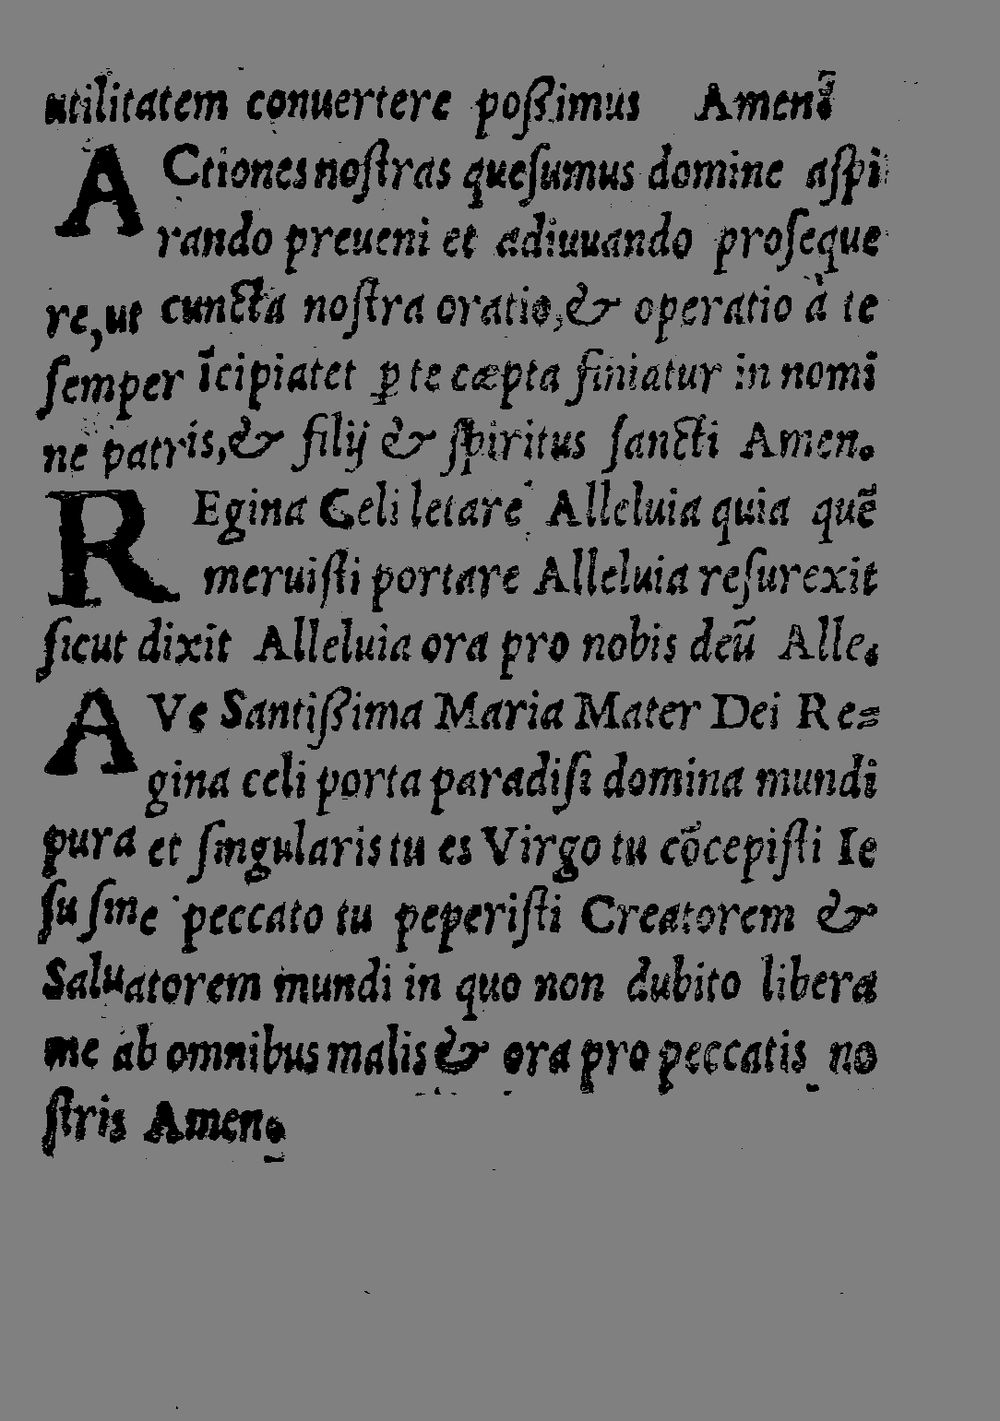 utilitatem conuertere poſſimus Amen.
ACtiones noſtras queſumus domine aſpi
rando preueni et adiuuando proſeque
re, ut cuncta noſtra oratio, & operatio à te
ſemper īcipiatet ꝑ te cæpta finiatur in nomi
ne patris, & filij & ſpiritus ſancti Amen.
REgina Celi letare Alleluia quia quē
meruiſti portare Alleluia reſurexit
ſicut dixit Alleluia ora pro nobis deū Alle.
AVe Santiſſima Maria Mater Dei Re=
gina celi porta paradiſi domina mundi
pura et ſingularis tu es Virgo tu cōcepiſti Ie
ſu ſine peccato tu peperiſti Creatorem &
Saluatorem mundi in quo non dubito libera
me ab omnibus malis & ora pro peccatis no
ſtris Amen.